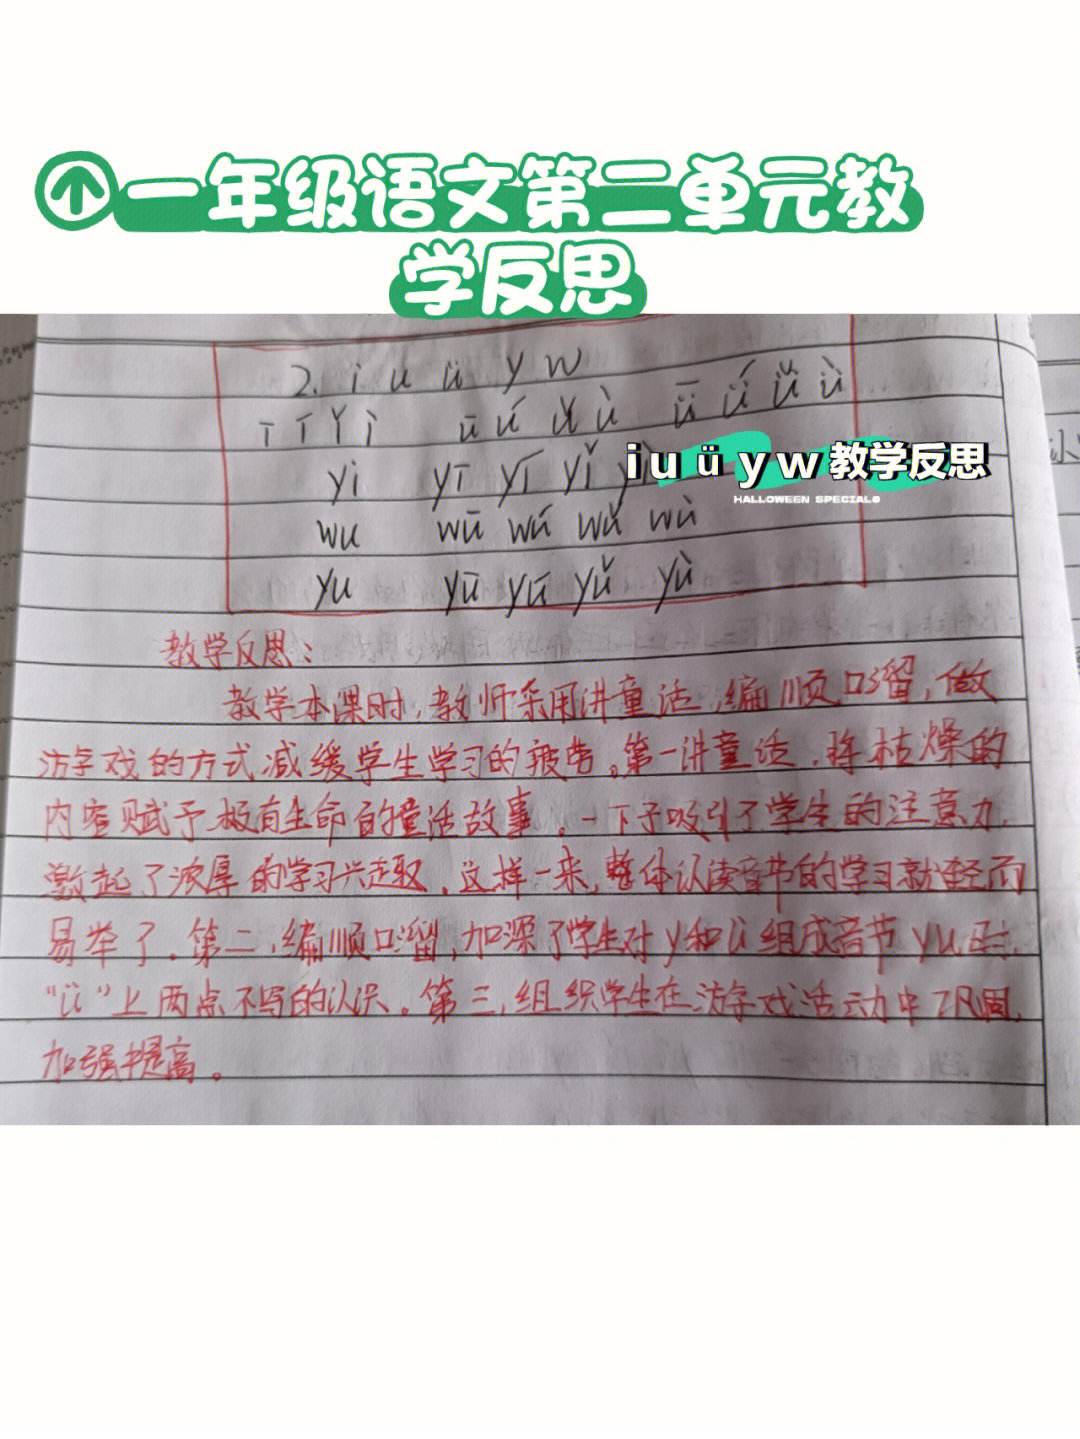 一年级语文第二单元教
学反思
2. i u ü y w
ī í ǐ ì ū ú ǔ ù ǖ ǘ ǚ ǜ
i u ü y w 教学反思
HALLOWEEN SPECIAL
yi yī yí yǐ
wu wū wú wǔ wù
yu yū yú yǔ yù
教学反思:
教学本课时,教师采用讲童话,编顺口溜,做
游戏的方式减缓学生学习的疲劳。第一讲童话,将枯燥的
内容赋予极有生命的童话故事。一下子吸引了学生的注意力,
激起了浓厚的学习兴趣,这样一来,整体认读音节的学习就轻而
易举了。第二,编顺口溜,加深了学生对y和ü组成音节yu时,
“ü”上两点不写的认识。第三,组织学生在游戏活动中巩固,
加强提高。